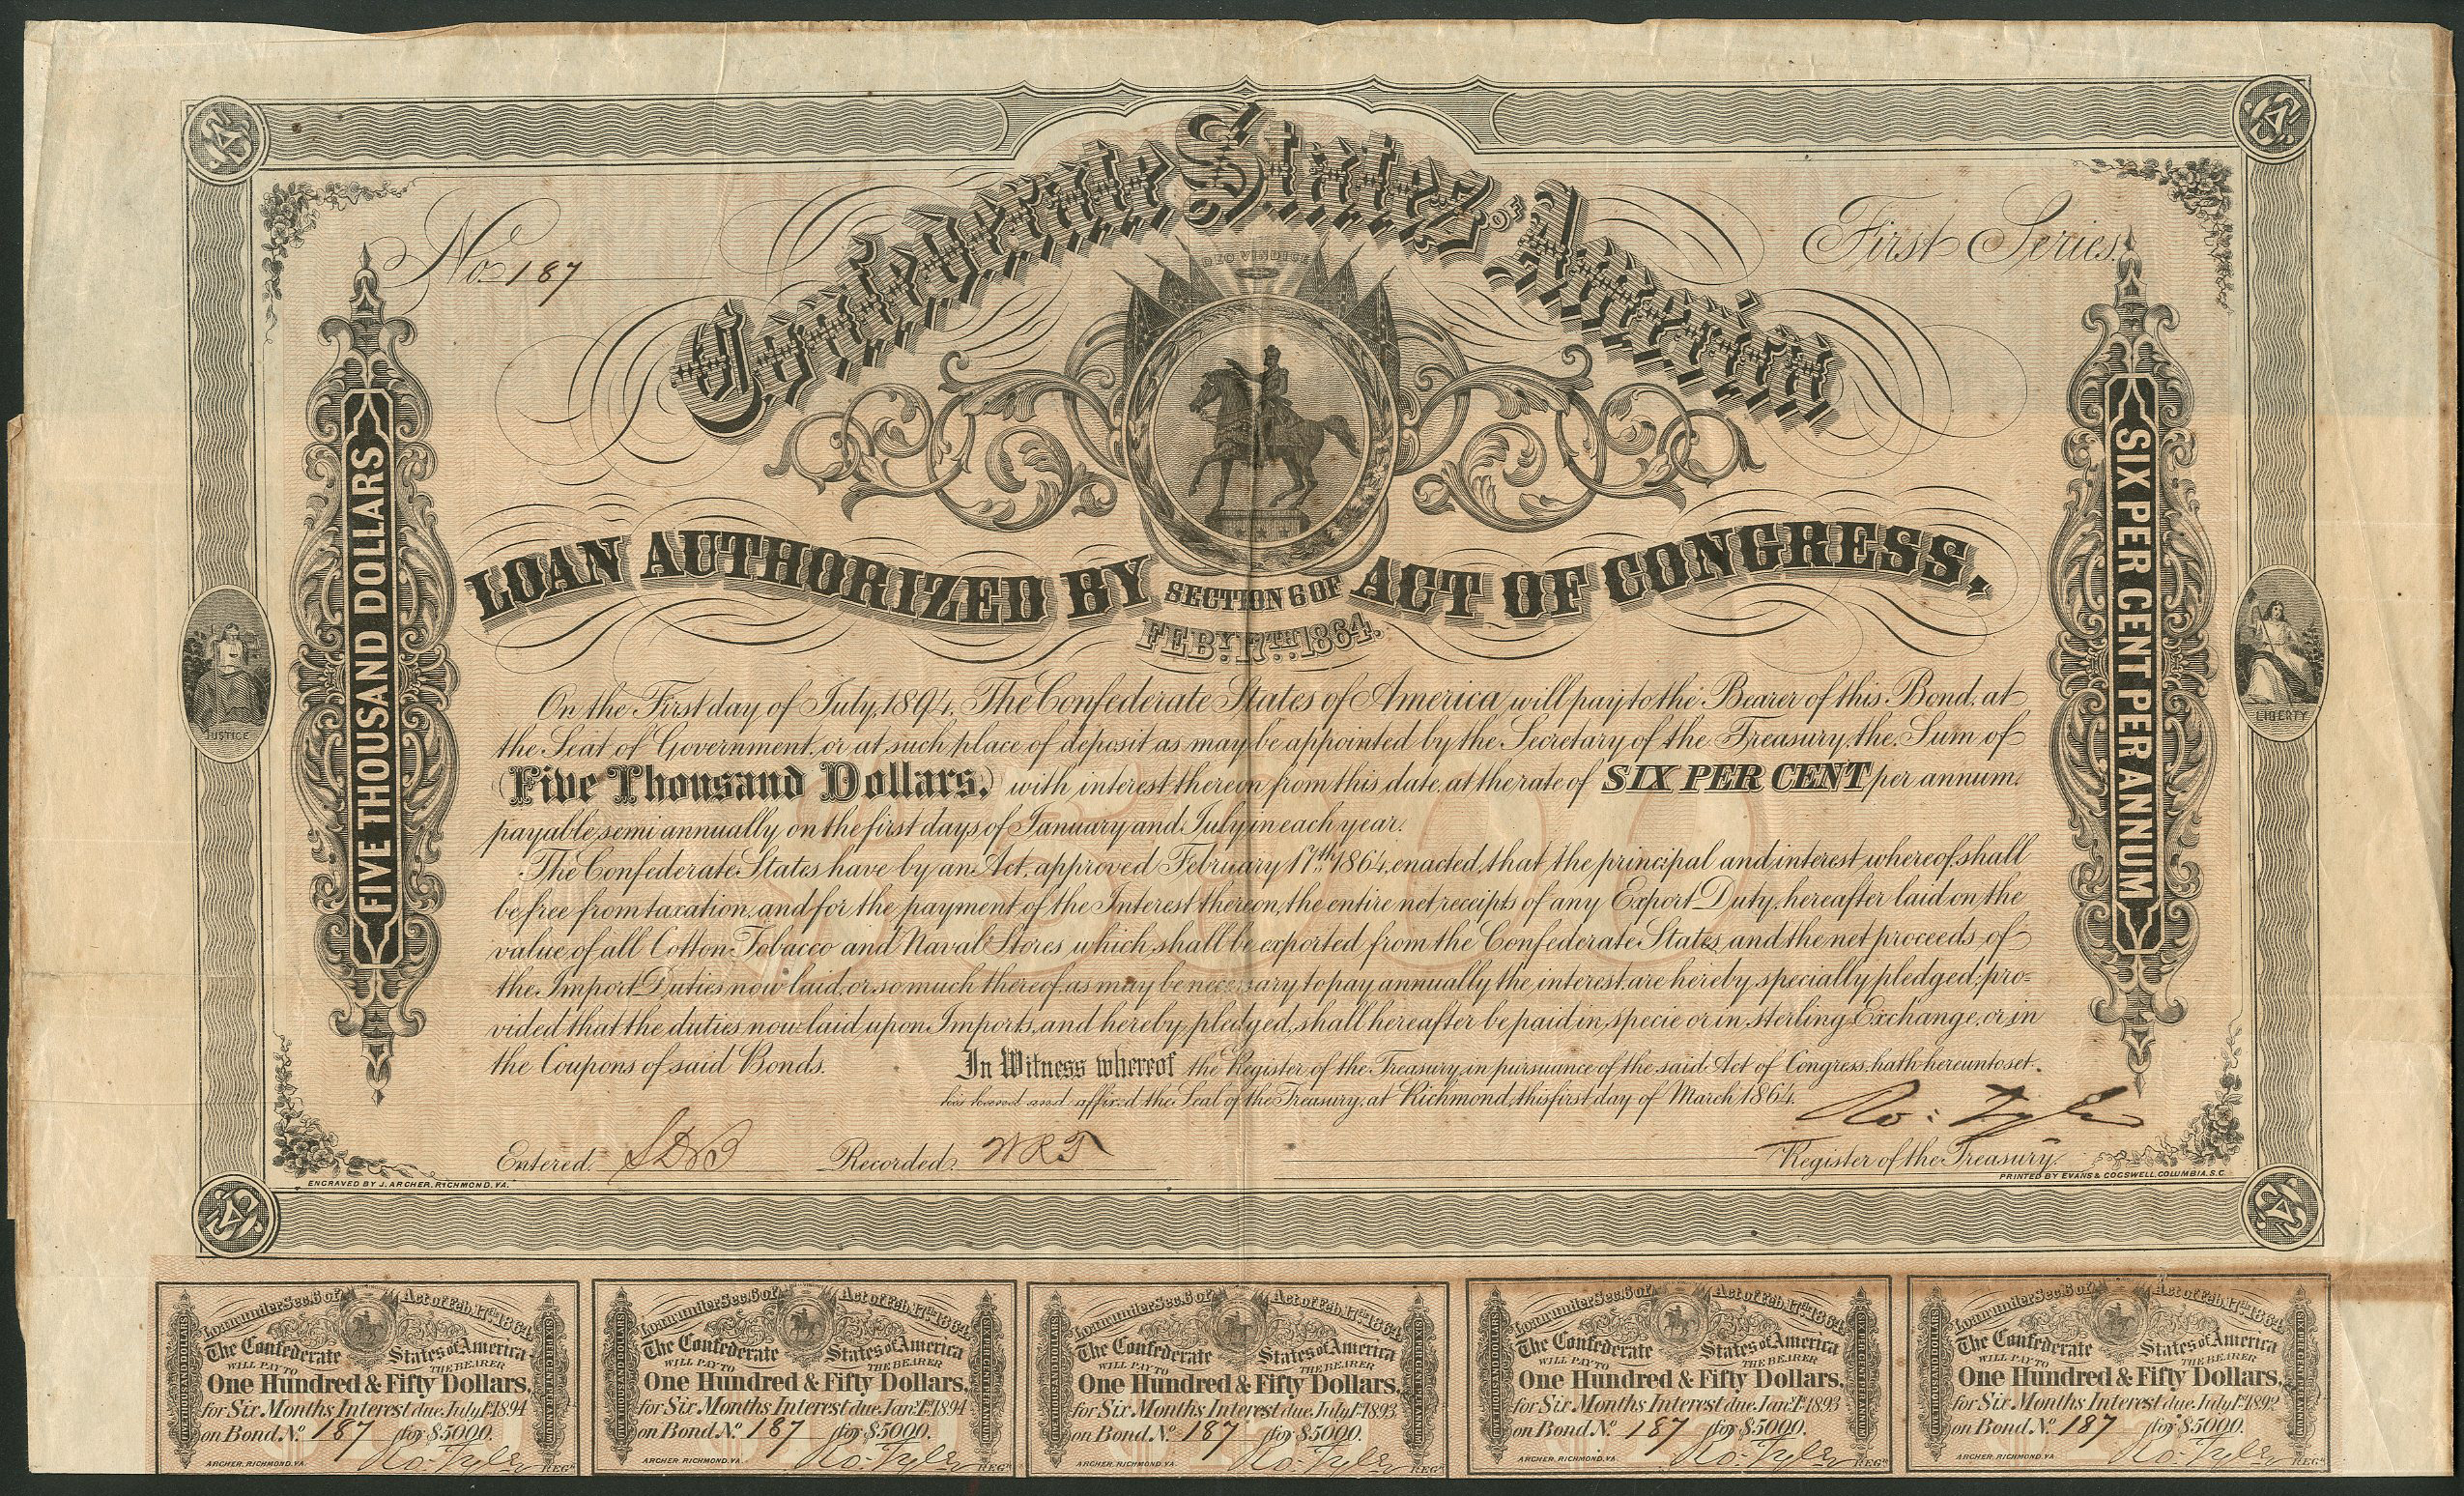 Confederate States of America
No. 187
First Series.
DEO VINDICE
LOAN AUTHORIZED BY SECTION 6 OF ACT OF CONGRESS,
FEBY. 17TH. 1864.
FIVE THOUSAND DOLLARS
SIX PER CENT PER ANNUM
JUSTICE
LIBERTY
On the First day of July, 1894, The Confederate States of America will pay to the Bearer of this Bond, at
the Seat of Government, or at such place of deposit as may be appointed by the Secretary of the Treasury, the Sum of
(Five Thousand Dollars,) with interest thereon from this date, at the rate of SIX PER CENT per annum,
payable semi annually on the first days of January and July in each year.
The Confederate States have by an Act, approved February 17th. 1864, enacted, that the principal and interest whereof shall
be free from taxation, and for the payment of the Interest thereon, the entire net receipts of any Export Duty, hereafter laid on the
value of all Cotton Tobacco and Naval Stores which shall be exported from the Confederate States, and the net proceeds of
the Import Duties now laid, or so much thereof, as may be necessary to pay annually the interest, are hereby specially pledged; pro=
vided that the duties now laid upon Imports, and hereby pledged, shall hereafter be paid in specie or in sterling Exchange, or in
the Coupons of said Bonds.
In Witness whereof the Register of the Treasury, in pursuance of the said Act of Congress, hath hereunto set
his hand and affixed the Seal of the Treasury, at Richmond, this first day of March 1864.
Ro: Tyler
Entered. Recorded. WRT Register of the Treasury.
ENGRAVED BY J. ARCHER, RICHMOND, VA.
PRINTED BY EVANS & COGSWELL, COLUMBIA, S.C.
$5000
Loan under Sec. 6 of Act of Feb. 17th 1864.
The Confederate States of America
WILL PAY TO THE BEARER
One Hundred & Fifty Dollars,
for Six Months Interest due July 1st 1894
on Bond No. 187 for $5000.
Ro: Tyler
ARCHER, RICHMOND, VA. REGR
FIVE THOUSAND DOLLARS
SIX PER CENT PER ANNUM
Loan under Sec. 6 of Act of Feb. 17th 1864.
The Confederate States of America
WILL PAY TO THE BEARER
One Hundred & Fifty Dollars,
for Six Months Interest due Jany. 1st 1894
on Bond No. 187 for $5000.
Ro: Tyler
ARCHER, RICHMOND, VA. REGR
FIVE THOUSAND DOLLARS
SIX PER CENT PER ANNUM
Loan under Sec. 6 of Act of Feb. 17th 1864.
The Confederate States of America
WILL PAY TO THE BEARER
One Hundred & Fifty Dollars,
for Six Months Interest due July 1st 1893
on Bond No. 187 for $5000.
Ro: Tyler
ARCHER, RICHMOND, VA. REGR
FIVE THOUSAND DOLLARS
SIX PER CENT PER ANNUM
Loan under Sec. 6 of Act of Feb. 17th 1864.
The Confederate States of America
WILL PAY TO THE BEARER
One Hundred & Fifty Dollars,
for Six Months Interest due Jany. 1st 1893
on Bond No. 187 for $5000.
Ro: Tyler
ARCHER, RICHMOND, VA. REGR
FIVE THOUSAND DOLLARS
SIX PER CENT PER ANNUM
Loan under Sec. 6 of Act of Feb. 17th 1864.
The Confederate States of America
WILL PAY TO THE BEARER
One Hundred & Fifty Dollars,
for Six Months Interest due July 1st 1892
on Bond No. 187 for $5000.
Ro: Tyler
ARCHER, RICHMOND, VA. REGR
FIVE THOUSAND DOLLARS
SIX PER CENT PER ANNUM